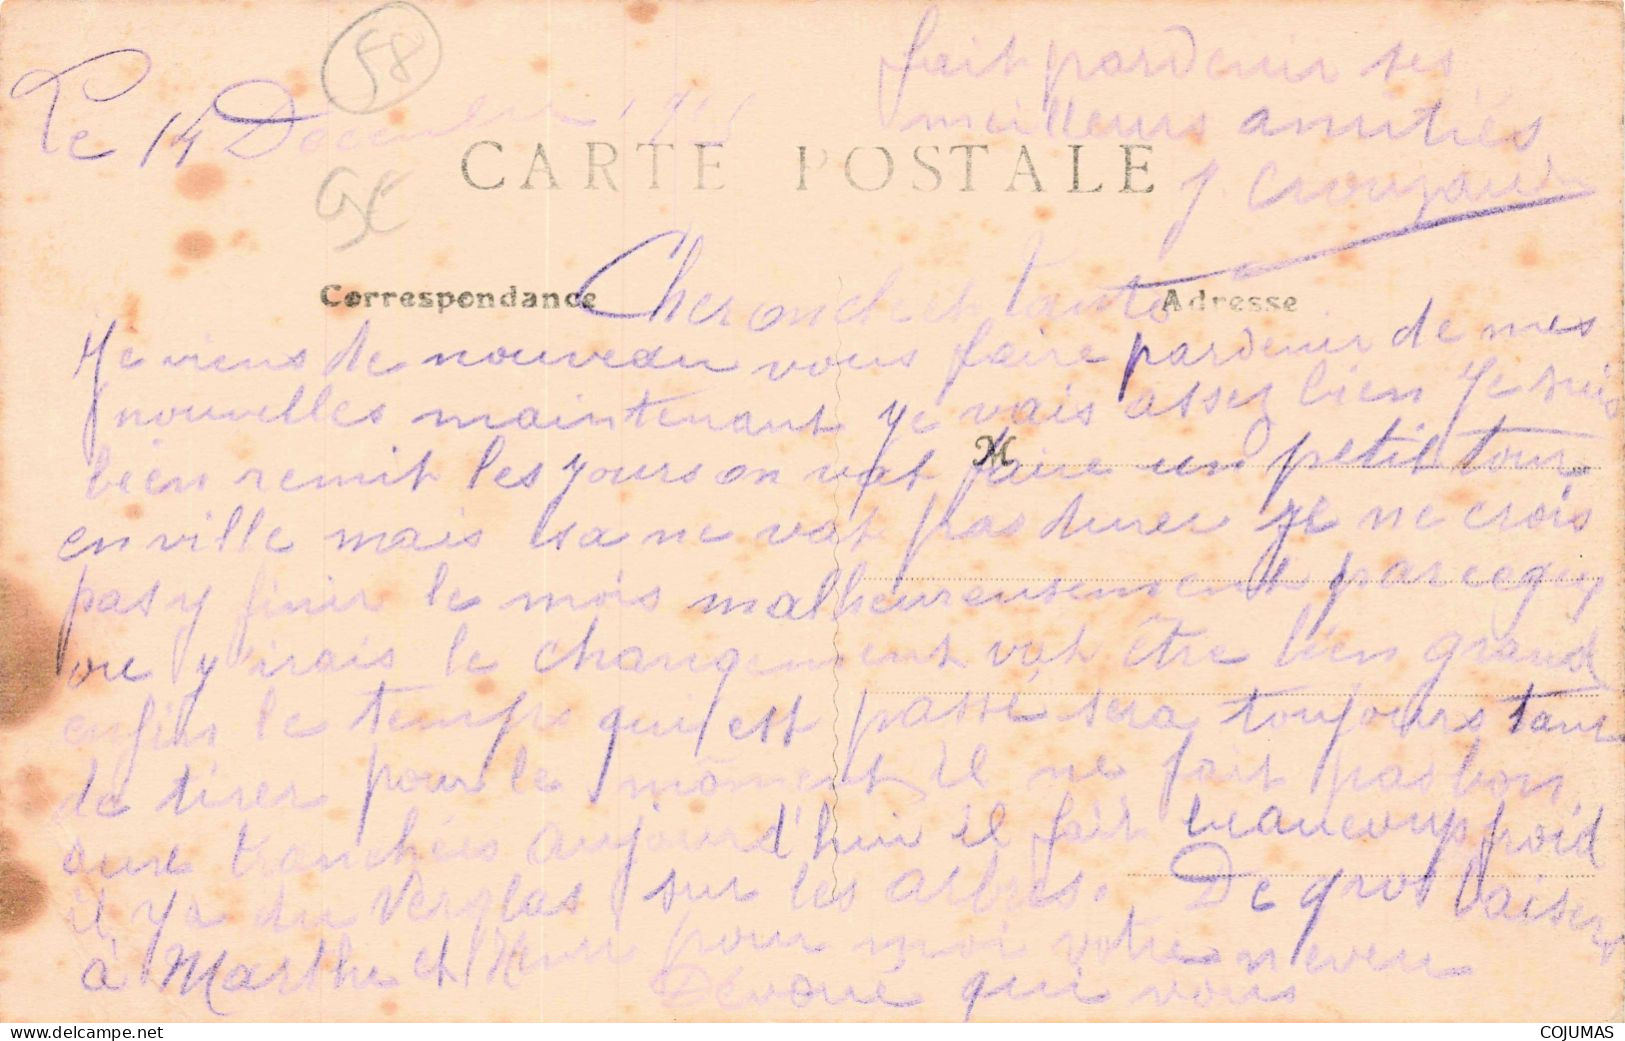 58
Le 14 Décembre 191
CARTE POSTALE
Correspondance
Adresse
M
Cher oncle et tante
Je viens de nouveau vous faire pardenir de mes
nouvelles maintenant je vais assez bien Je suis
bien remit les jours on vat faire un petit tour
en ville mais sa ne vat pas durer je ne crois
pas y finir le mois malheureusement parceque
ou y irais le changement vat être bien grand
enfin le temps qui est passé sera toujours tant
de tirer pour le môment il ne fait pas bon
aux tranchées aujourd'hui il fait beaucoup froid
il y a du verglas sur les arbres. De gros baiser
à Marthe et pour moi votre neveu
Dévoué qui vous
fait pardenir ses
meilleurs amitiés
J. Crouzau
COJUMAS